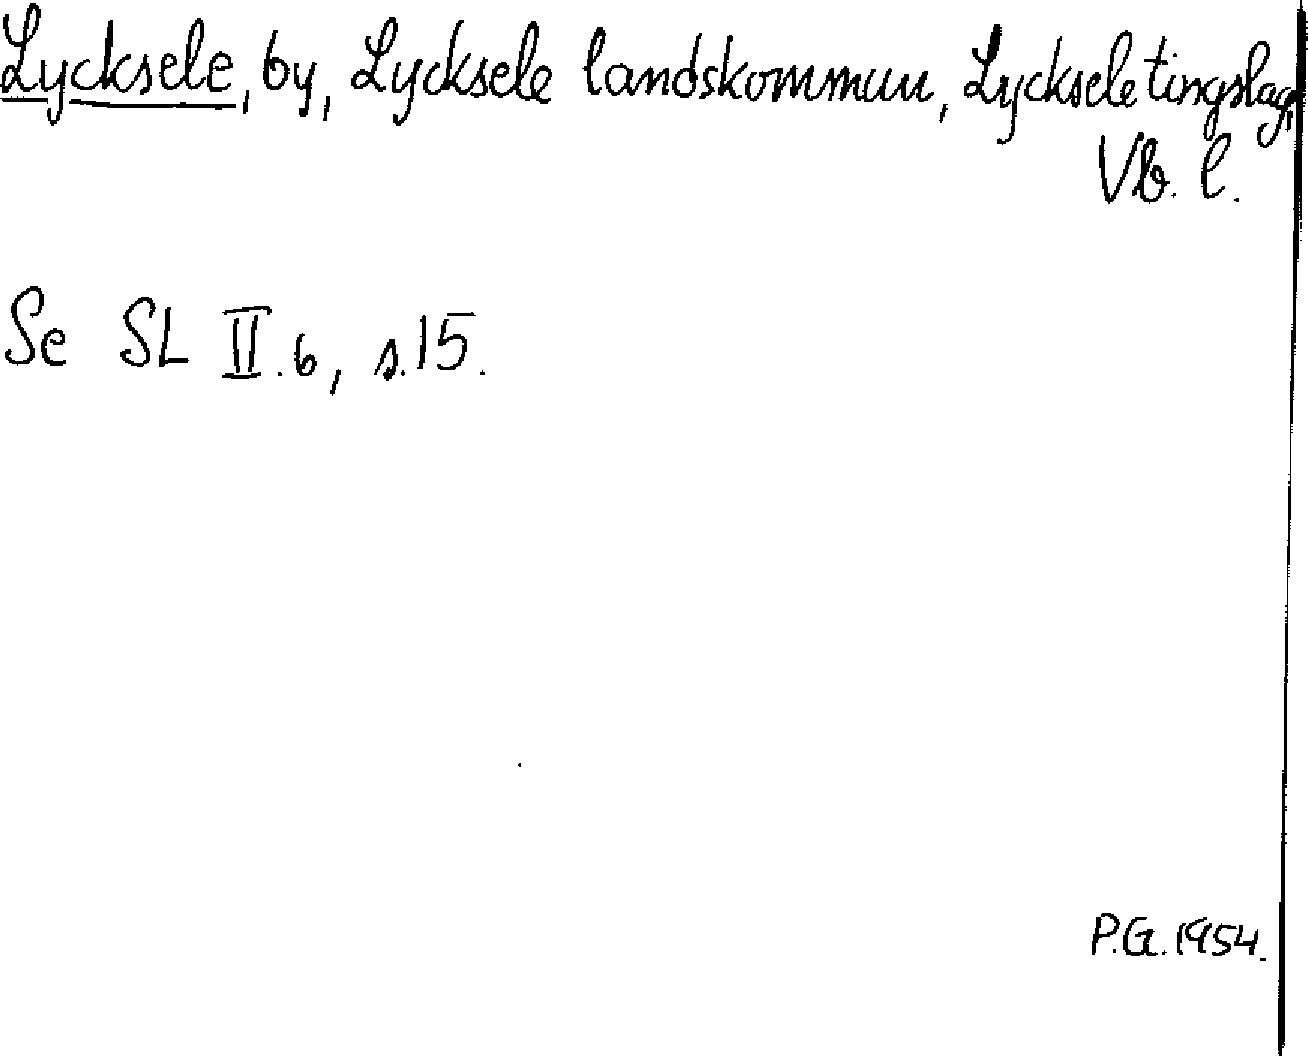 Lycksele, by, Lycksele landskommun, Lycksele tingslag,
Vb. l.
Se SL II.6, s.15.
P.G. 1954.